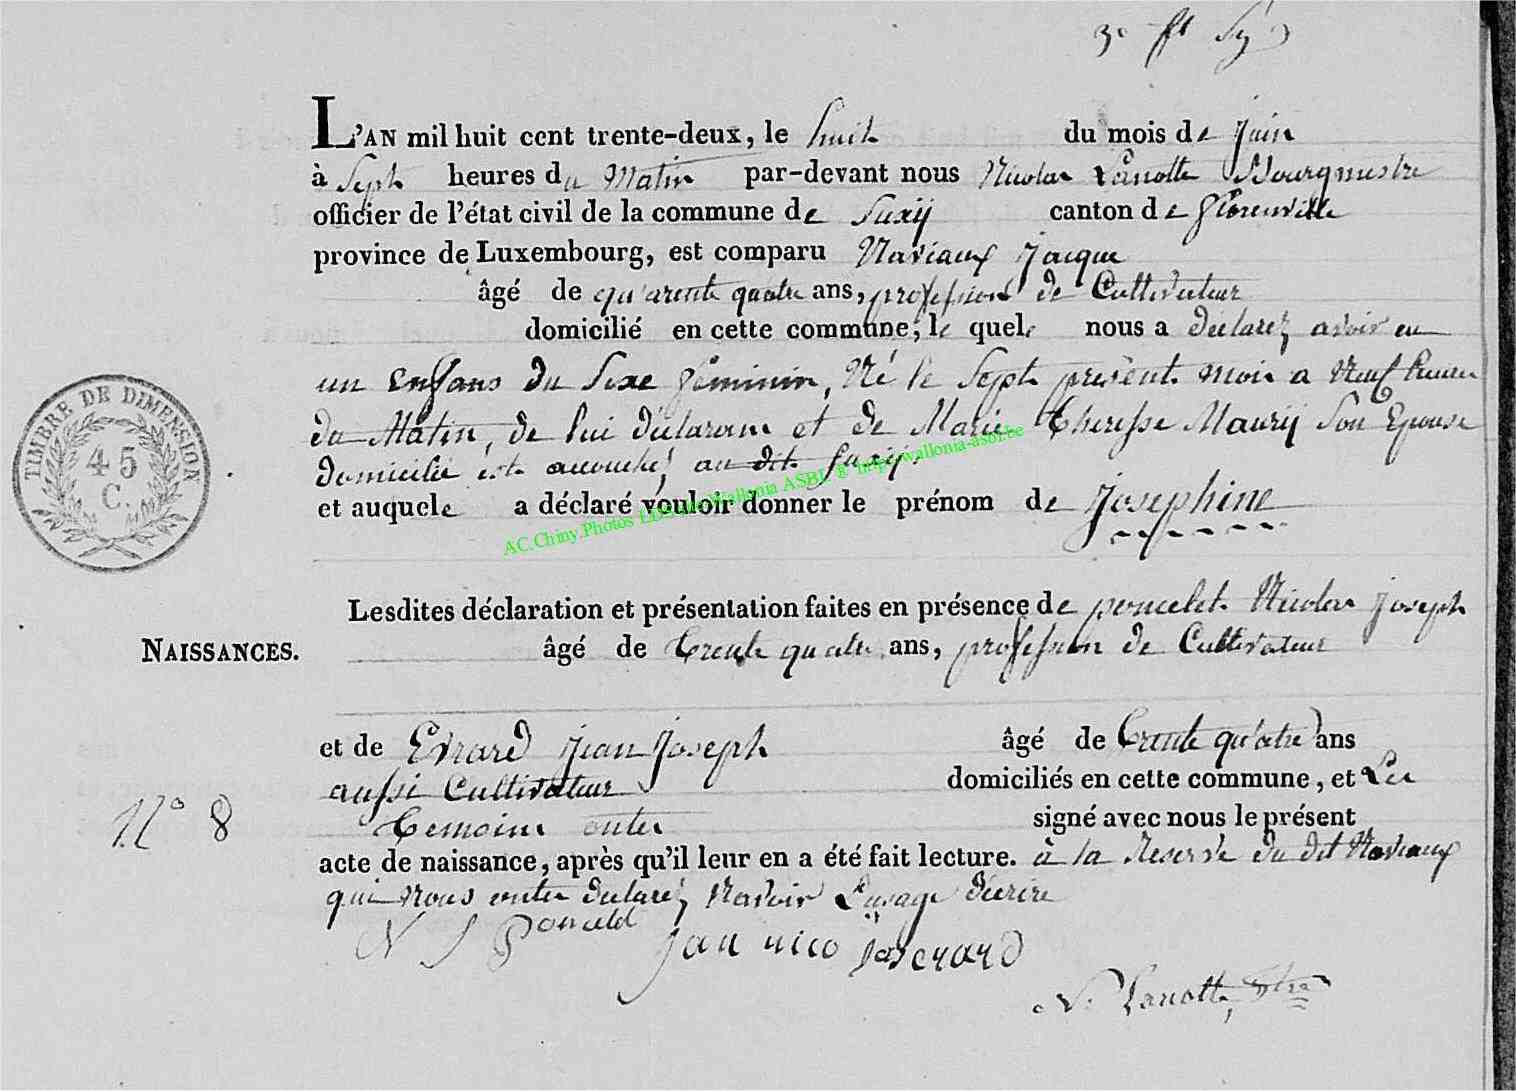 L'AN mil huit cent trente-deux, le huit du mois de Juin
à Sept heures du Matin par-devant nous Nicolas Lanotte Bourgmestre
officier de l'état civil de la commune de Suxÿ canton de florenville
province de Luxembourg, est comparu Naviaux Jacque
âgé de qu'arente quatre ans, profession de Cultivateur
domicilié en cette commune, le quele nous a déclarez avoir eu
un Enfans du Sexe féminin, Né le Sept présent mois a Neuf heures
du Matin, de lui déclarant et de Marie Theresse Maurÿ Son Epouse
domicilié est accouché au dit Suxÿ.
AC.Chiny.Photos Wallonia ASBL @ http:wallonia-asbl.be
et auquele a déclaré vouloir donner le prénom de Josephine
TIMBRE DE DIMENSION
45
C.
Lesdites déclaration et présentation faites en présence de poncelet Nicolas Joseph
NAISSANCES.
âgé de trente quatre ans, profession de Cultivateur
et de Evrard Jean Joseph âgé de trente qu'atre ans
aussi Cultivateur domiciliés en cette commune, et Les
N.° 8
temoins onter signé avec nous le présent
acte de naissance, après qu'il leur en a été fait lecture. à la Reserve du dit Naviaux
qui nous onter declarez Navoir Lusage décrire
N J Poncelet
Jan nico Jos erard
N. Lanotte